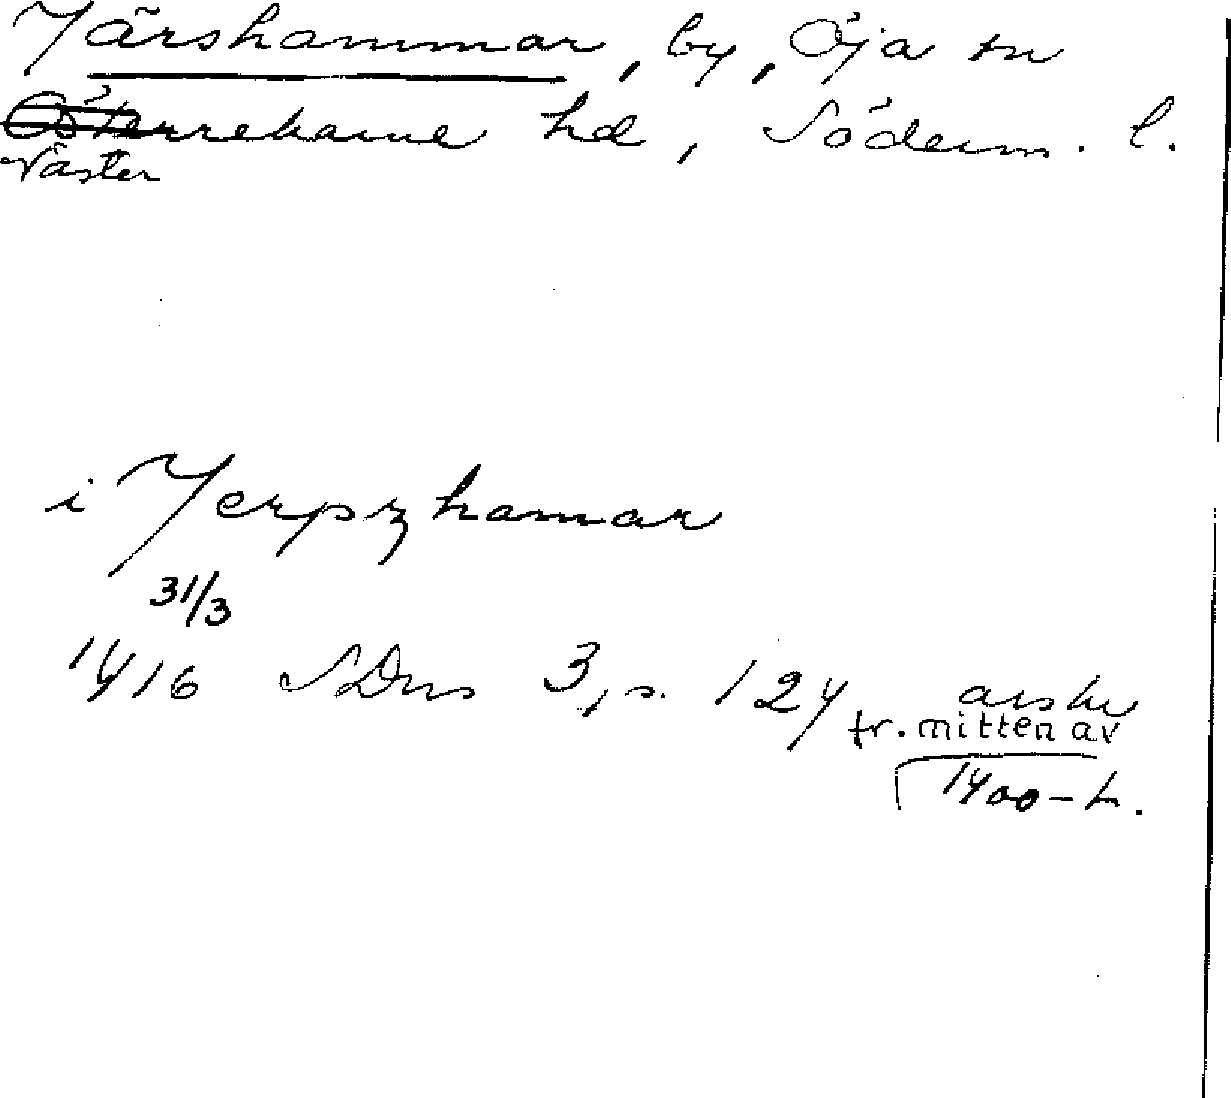 Järshammar, by, Öja sn
Österrekarne hd, Söderm. l.
Väster
i Jerpzhamar
31/3
1416 SDns 3, s. 124 avskr
fr. mitten av
1400-t.